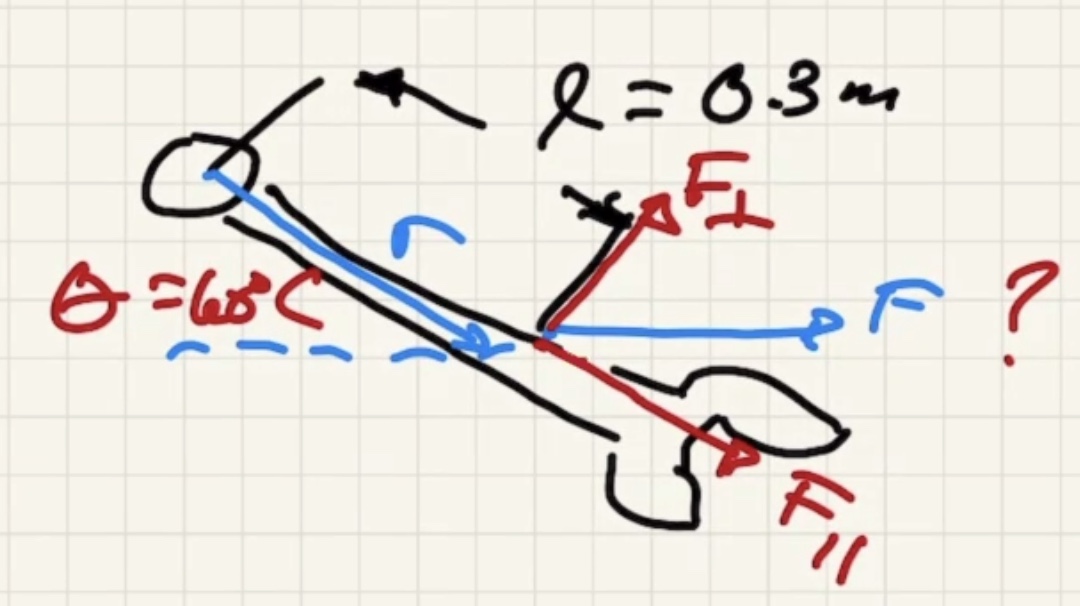 l = 0.3 m
F⊥
r
θ = 60°
F ?
F //